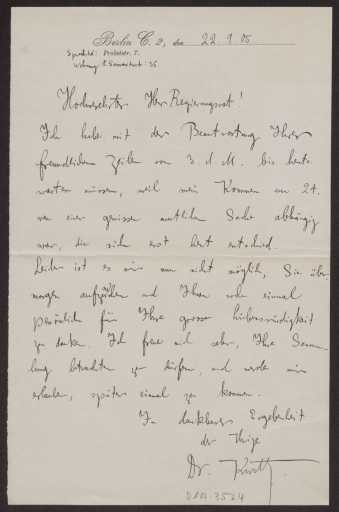 Berlin C. 2, den 22 9 05
Hochverehrter Herr Regierungsrat!
Ich habe mit der Beantwortung Ihrer
freundlichen Zeilen vom 3. d. M. bis heute
warten müssen, weil mein Kommen am 24.
von einer gewissen amtlichen Sache abhängig
war, die sich erst heut entschied.
Leider ist es mir nun nicht möglich, Sie über-
morgen aufzusuchen und Ihnen noch einmal
persönlich für Ihre grosse Liebenswürdigkeit
zu danken. Ich freue mich sehr, Ihre Samm-
lung betrachten zu dürfen, und werde mir
erlauben, später einmal zu kommen.
In dankbarer Ergebenheit
der Ihrige
Dr.